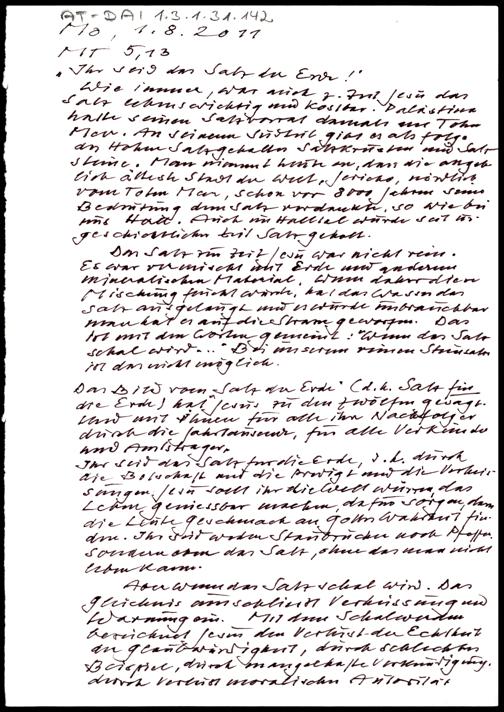 AT-DAI 1.3.1.31.142
Mo, 1.8.2011
MT 5,13
„Ihr seid das Salz der Erde!"
Wie immer, war auch z. Zeit Jesu das
Salz lebenswichtig und kostbar. Palästina
hatte seinen Salzvorrat damals am Toten
Meer. An seinem Südteil gibt es als Folge
des hohen Salzgehaltes Salzkrusten und Salz
steine. Man nimmt heute an, dass die angeb
lich älteste Stadt der Welt, Jericho, nördlich
vom Toten Meer, schon vor 8000 Jahren seine
Bedeutung dem Salz verdankte, so wie bei
uns Hall. Auch in Hallstatt wurde seit ur-
geschichtlicher Zeit Salz geholt.
Das Salz zur Zeit Jesu war nicht rein.
Es war vermischt mit Erde und anderem
mineralischen Material. Wenn daher diese
Mischung feucht wurde, hat das Wasser das
Salz ausgelaugt und es wurde unbrauchbar
man hat es auf die Strasse geworfen. Das
ist mit den Worten gemeint: "Wenn das Salz
schal wird..." Bei unserem reinen Steinsalz
ist das nicht möglich.
Das Bild vom "Salz der Erde" (d.h. Salz für
die Erde) hat Jesus zu den Zwölfen gesagt.
Und mit Ihnen für alle ihre Nachfolger
durch die Jahrtausende, für alle Verkünder
und Amtsträger.
Ihr seid das Salz für die Erde, d.h. durch
die Botschaft und die Predigt und die Verheis-
sungen Jesu sollt ihr die Welt würzen, das
Leben geniessbar machen, dafür sorgen, dass
die Leute Geschmack an Gottes Wahrheit fin-
den. Ihr seid weder Staubzucker noch Pfeffer
sondern eben das Salz, ohne das man nicht
leben kann.
Aber wenn das Salz schal wird. Das
Gleichnis umschliesst Verheissung und
Warnung. Mit dem Schalwerden
bezeichnet Jesus den Verlust der Echtheit
der Glaubwürdigkeit, durch schlechtes
Beispiel, durch mangelhafte Verkündigung,
durch Verlust moralischer Autorität